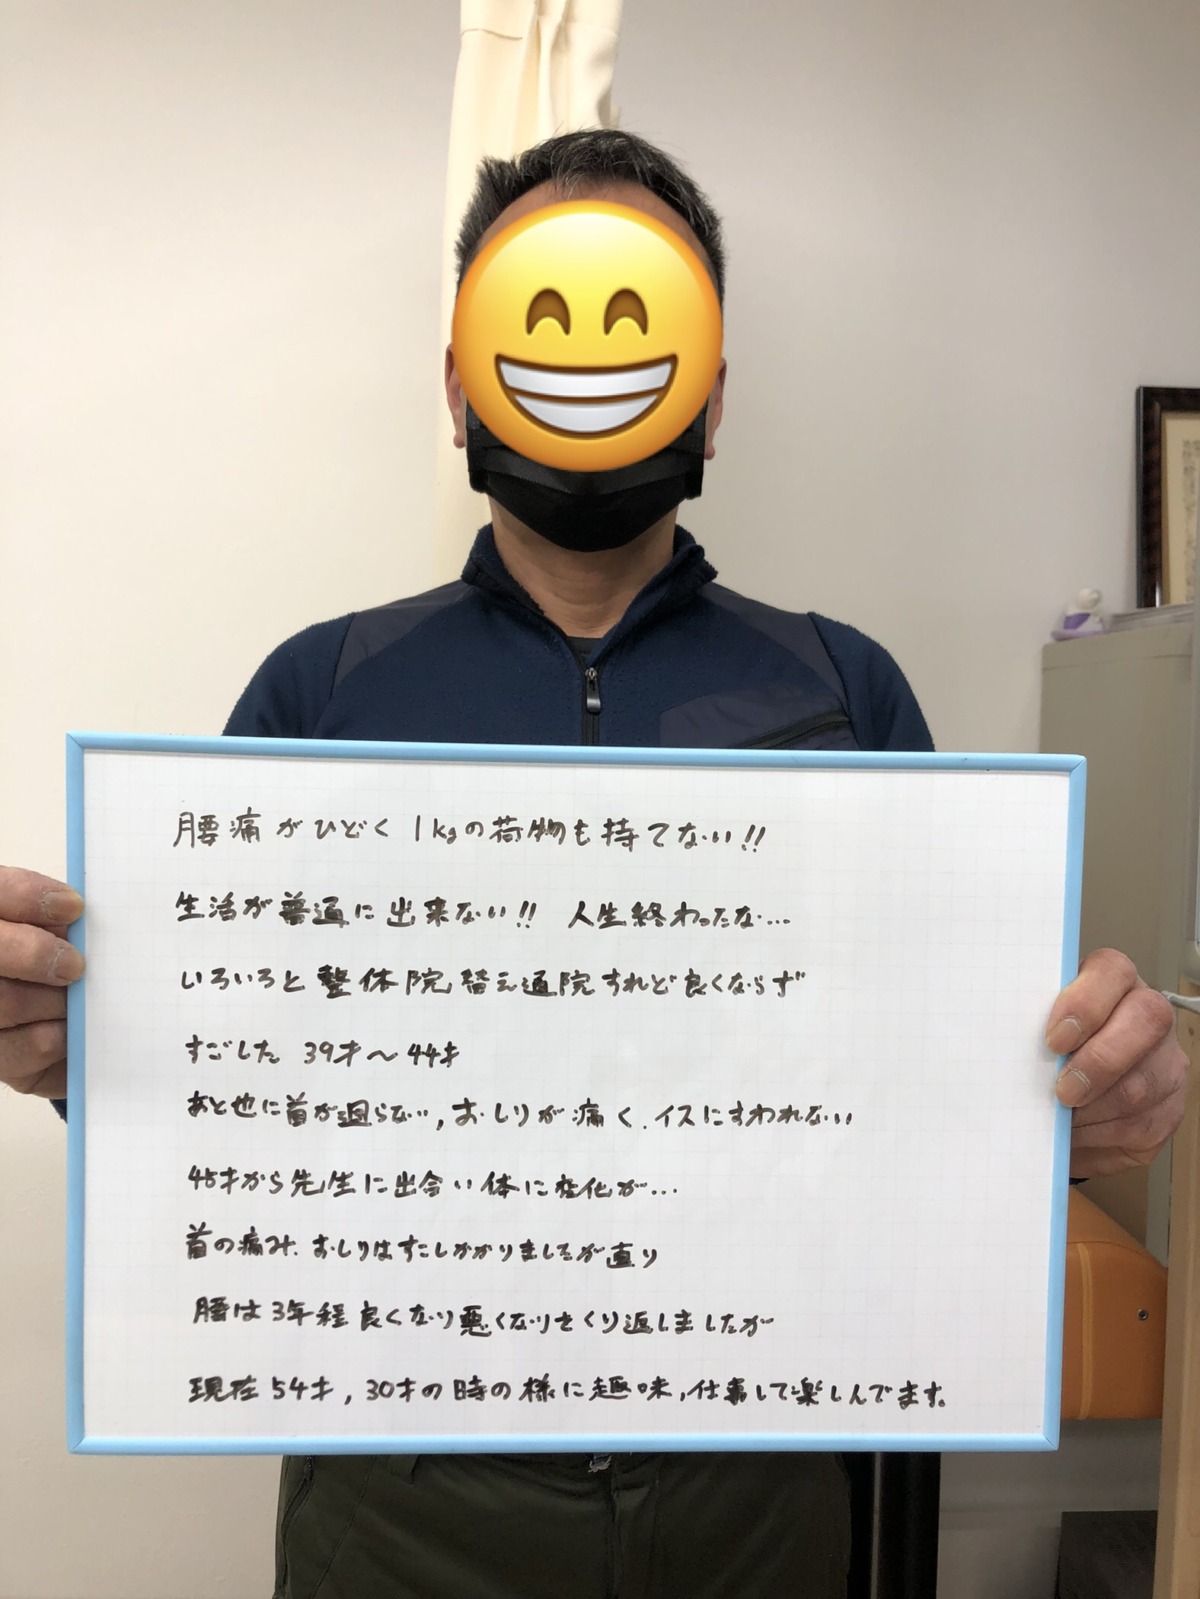 腰痛がひどく 1kgの荷物も持てない!!
生活が普通に出来ない!! 人生終わったな…
いろいろと整体院替え通院すれど良くならず
すごした 39才〜44才
あと他に首が廻らない、おしりが痛く、イスにすわれない
45才から先生に出会い体に変化が…
首の痛み、おしりはすこしかかりましたが直り
腰は3年程良くなり悪くなりをくり返しましたが
現在54才、30才の時の様に趣味、仕事して楽しんでます。